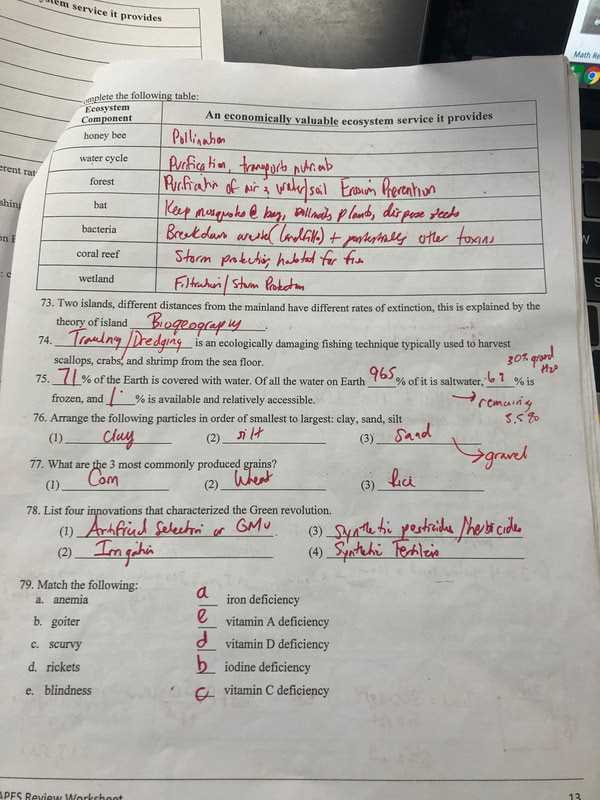 stem service it provides
Math Re
omplete the following table:
Ecosystem Component
An economically valuable ecosystem service it provides
honey bee Pollination
water cycle Purification, transports nutrients
forest Purification of air & water/soil Erosion Prevention
bat Keep mosquitos @ bay, pollinate plants, disperse seeds
bacteria Breakdown waste (landfills) + potentially other toxins
coral reef Storm protection, habitat for fish
wetland Filtration/Storm Protection
73. Two islands, different distances from the mainland have different rates of extinction, this is explained by the
theory of island Biogeography.
74. Trawling/Dredging is an ecologically damaging fishing technique typically used to harvest
scallops, crabs, and shrimp from the sea floor.
30% ground H2O
75. 71% of the Earth is covered with water. Of all the water on Earth 96.5 % of it is saltwater, % is
frozen, and % is available and relatively accessible.
→ remaining 3.5%
76. Arrange the following particles in order of smallest to largest: clay, sand, silt
(1) clay (2) silt (3) sand
→ gravel
77. What are the 3 most commonly produced grains?
(1) Corn (2) Wheat (3) Rice
78. List four innovations that characterized the Green revolution.
(1) Artificial Selection or GMO (3) Synthetic pesticides/herbicides
(2) Irrigation (4) Synthetic Fertilizer
79. Match the following:
a. anemia a iron deficiency
b. goiter e vitamin A deficiency
c. scurvy d vitamin D deficiency
d. rickets b iodine deficiency
e. blindness c vitamin C deficiency
APES Review Worksheet 13